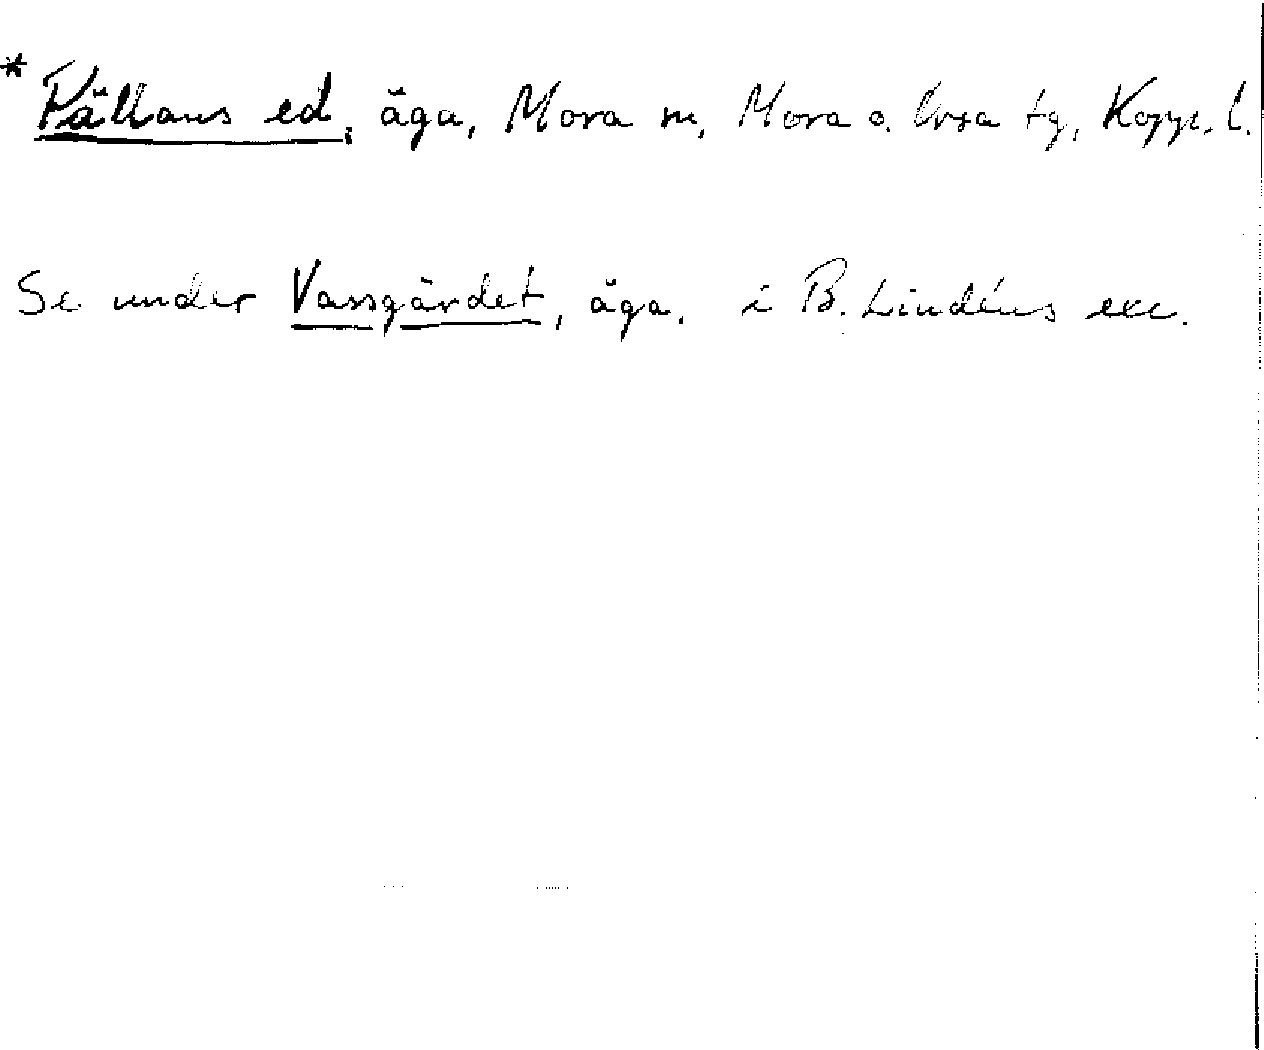 * Pällans ed, äga, Mora sn, Mora o. Orsa tg, Kopp. l.
Se under Vassgärdet, äga, i B. Lindéns exc.